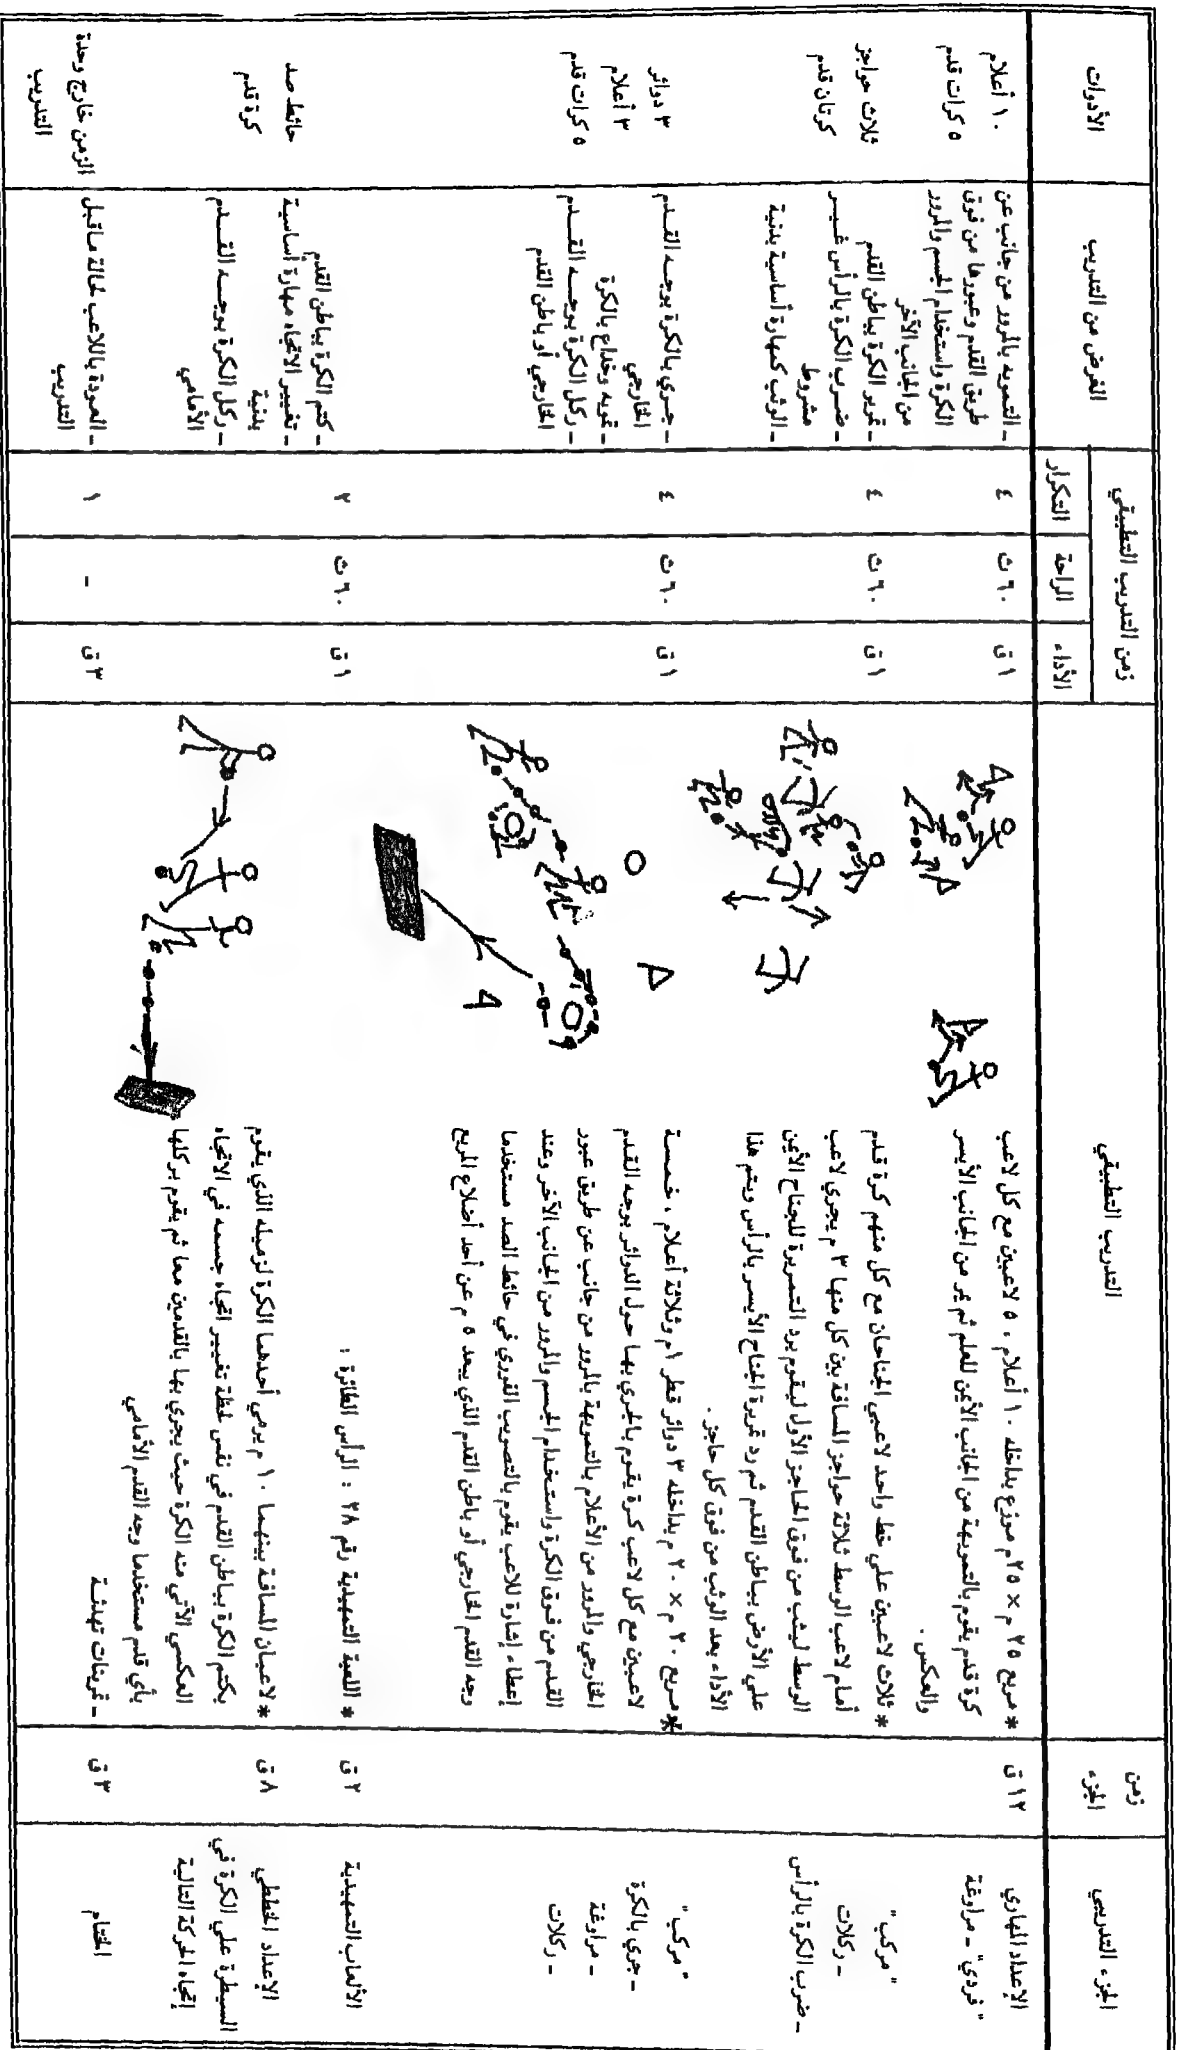 الجزء التدريبي
زمن
الجزء
التدريب التطبيقي
زمن التدريب التطبيقي
الأداء
الراحة
التكرار
الغرض من التدريب
الأدوات
الإعداد المهاري
" فردي" - مراوغة
١٢ ق
* مربع ٢٥ م × ٢٥ م موزع بداخله ١٠ أعلام ، ٥ لاعبين مع كل لاعب
كرة قدم يقوم بالتمويهة من الجانب الأيمن للعلم ثم يمر من الجانب الأيسر
والعكس .
١ ق
٦٠ ث
٤
- التمويه بالمرور من جانب عن
طريق القدم وعبورها من فوق
الكرة واستخدام الجسم والمرور
من الجانب الآخر
١٠ أعلام
٥ كرات قدم
" مركب "
- ركلات
- ضرب الكرة بالرأس
* ثلاث لاعبين علي خط واحد لاعبي الجناحان مع كل منهم كرة قدم
أمام لاعب الوسط ثلاثة حواجز المسافة بين كل منها ٣ م يجري لاعب
الوسط ليثب من فوق الحاجز الأول ليقوم برد التمريرة للجناح الأيمن
علي الأرض بباطن القدم ثم رد تمريرة الجناح الأيسر بالرأس ويتم هذا
الأداء بعد الوثب من فوق كل حاجز .
١ ق
٦٠ ث
٤
- تمرير الكرة بباطن القدم
- ضرب الكرة بالرأس غير
مشروط
- الوثب كمهارة أساسية بدنية
ثلاث حواجز
كرتان قدم
" مركب "
- جري بالكرة
- مراوغة
- ركلات
* مربع ٢٠ م × ٢٠ م بداخله ٣ دوائر قطر ١م وثلاثة أعلام ، خمسة
لاعبين مع كل لاعب كرة يقوم بالجري بها حول الدوائر بوجه القدم
الخارجي والمرور من الأعلام بالتمويهة بالمرور من جانب عن طريق عبور
القدم من فوق الكرة واستخدام الجسم والمرور من الجانب الآخر وعند
إعطاء إشارة للاعب يقوم بالتصويب الفوري في حائط الصد مستخدما
وجه القدم الخارجي أو باطن القدم الذي يبعد ٥ م عن أحد أضلاع المربع
١ ق
٦٠ ث
٤
- جري بالكرة بوجه القدم
الخارجي
- تمويه وخداع بالكرة
- ركل الكرة بوجه القدم
الخارجي أو باطن القدم
٣ دوائر
٣ أعلام
٥ كرات قدم
الألعاب التمهيدية
٢ ق
* اللعبة التمهيدية رقم ٢٨ : الرأس الطائرة :
١ ق
٦٠ ث
٢
الإعداد الخططي
السيطرة علي الكرة في
إتجاه الحركة التالية
٨ ق
* لاعبان المسافة بينهما ١٠ م يرمي أحدهما الكرة لزميله الذي يقوم
بكتم الكرة بباطن القدم في نفس لحظة تغيير اتجاه جسمه في الاتجاه
العكسي الآتي منه الكرة حيث يجري بها بالقدمين معا ثم يقوم بركلها
بأي قدم مستخدما وجه القدم الأمامي
- كتم الكرة بباطن القدم
- تغيير الاتجاه مهارة أساسية
بدنية
- ركل الكرة بوجه القدم
الأمامي
حائط صد
كرة قدم
الختام
٣ ق
- تمرينات تهدئة
٣ ق
-
١
- العودة باللاعب لحالة ماقبل
التدريب
الزمن خارج وحدة
التدريب